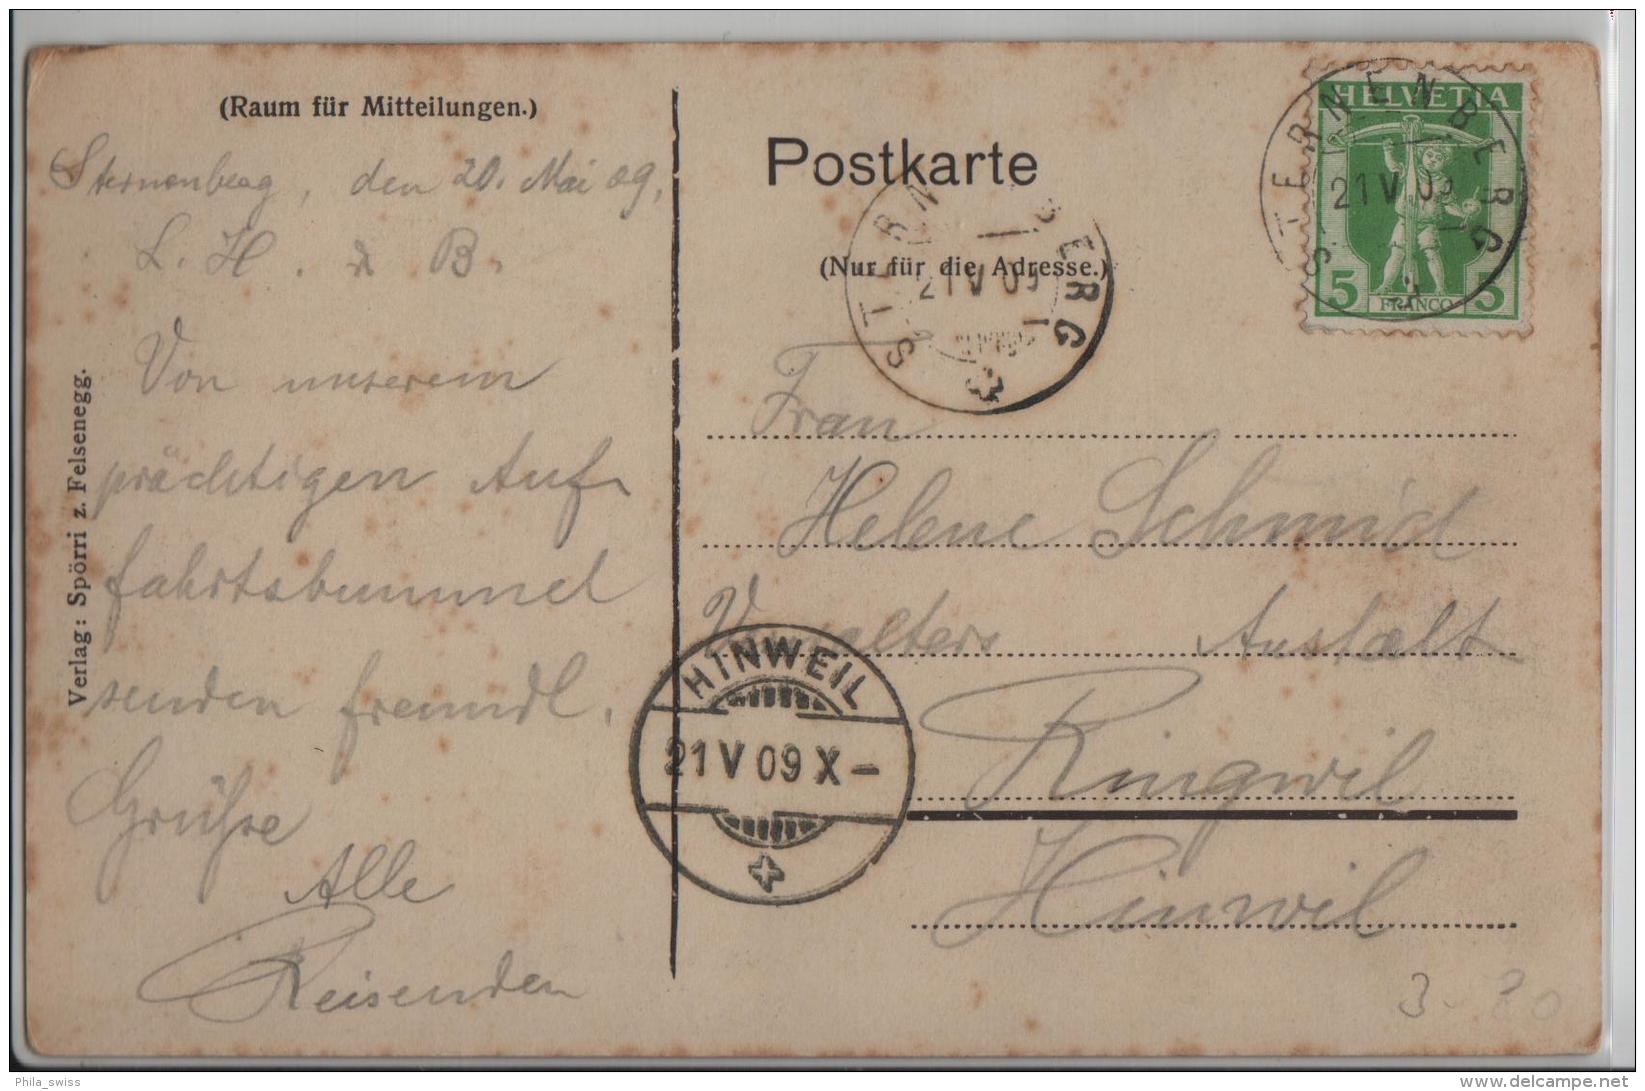 (Raum für Mitteilungen.)
Sternenberg, den 20. Mai 09,
L. H. & B.
Von unserem
prächtigen Auf-
fahrtsbummel
senden freundl.
Grühse
Alle
Reisenden
Verlag: Spörri z. Felsenegg.
Postkarte
(Nur für die Adresse.)
STERNENBERG
21 V 09
HELVETIA
5 FRANCO 5
STERNENBERG
21 V 09
Frau
Helene Schmid
Verwalters Anstalt
Ringwil
Hinwil
HINWEIL
21 V 09 X –
3.20
Phila_swiss
delcampe.net